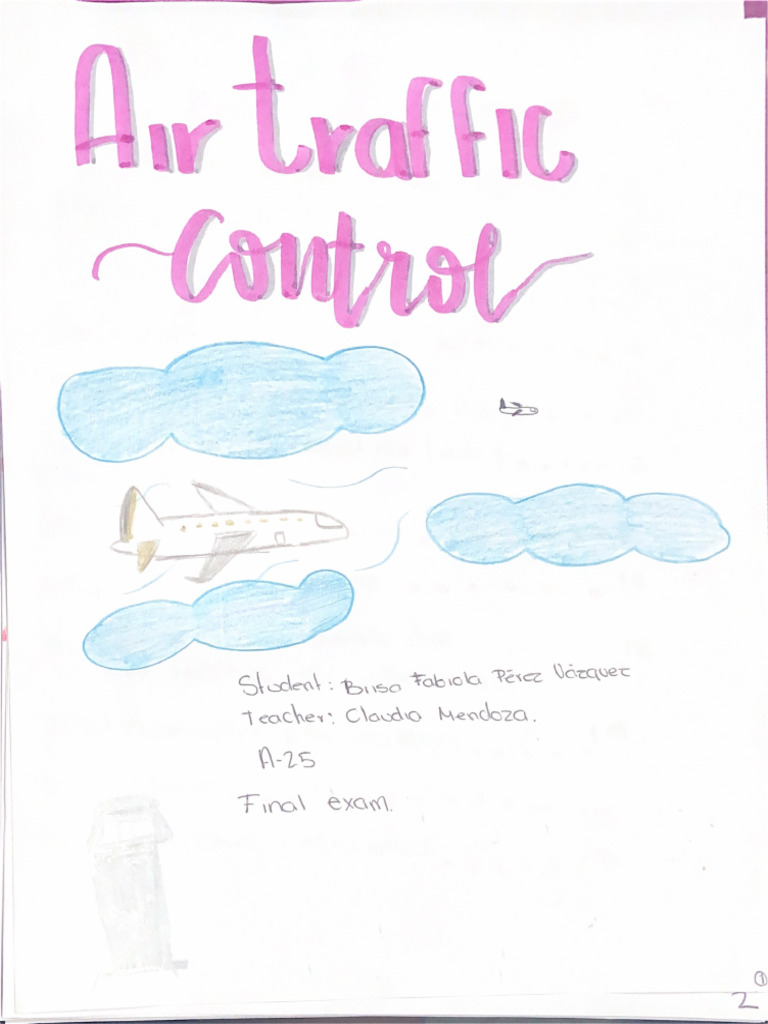 Air traffic
control
Student: Brisa Fabiola Pérez Vázquez
Teacher: Claudia Mendoza.
A-25
Final exam.
1
2